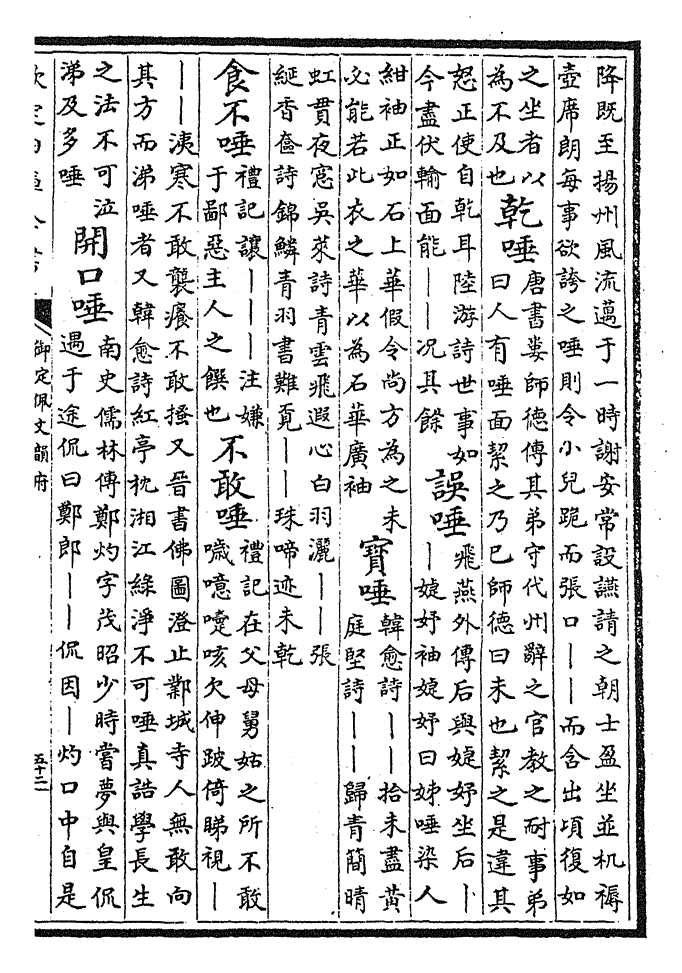 降既至揚州風流邁于一時謝安常設讌請之朝士盈坐並机褥
壺席朗每事欲誇之唾則令小兒跪而張口——而含出頃復如
之坐者以
為不及也
乾唾
唐書婁師德傳其弟守代州辭之官教之耐事弟
曰人有唾面絜之乃已師德曰未也絜之是違其
怒正使自乾耳陸游詩世事如
今盡伏輸面能——况其餘
誤唾
飛燕外傳后與婕妤坐后—
—婕妤袖婕妤曰姊唾染人
紺袖正如石上華假令尚方為之未
必能若此衣之華以為石華廣袖
寳唾
韓愈詩——拾未盡黄
庭堅詩——歸青簡晴
虹貫夜窓吳萊詩青雲飛遐心白羽灑——張
綖香奩詩錦鱗青羽書難覓——珠啼迹未乾
食不唾
禮記讓———注嫌
于鄙惡主人之饌也
不敢唾
禮記在父母舅姑之所不敢
噦噫嚏咳欠伸跛倚睇視—
——洟寒不敢襲癢不敢搔又晉書佛圖澄止鄴城寺人無敢向
其方而涕唾者又韓愈詩紅亭枕湘江緑淨不可唾真誥學長生
之法不可泣
涕及多唾
開口唾
南史儒林傳鄭灼字茂昭少時嘗夢與皇侃
遇于途侃曰鄭郎——侃因—灼口中自是
御定佩文韻府
五十二